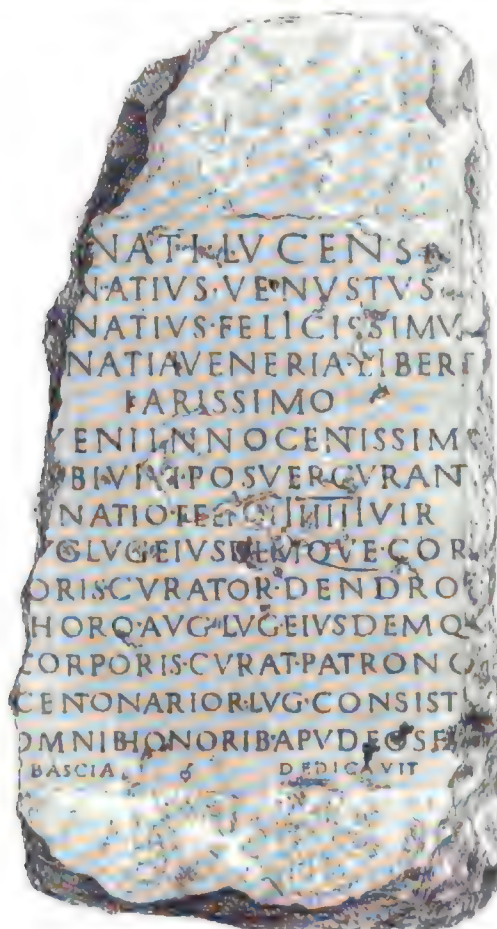 NATI·LVCENS
NATIVS·VENVSTVS
NATIVS·FELICISSIMV
NATIA·VENERIA·LIBERT
ARISSIMO
VENI·INNOCENTISSIM
BI·VIVI·POSVER·CVRANT
NATIO·FEL IIIIIIVIR
GLVG·EIVSDEMQVE·COR
ORIS·CVRATOR·DENDRO
HORO·AVG·LVG·EIVSDEMQ
CORPORIS·CVRAT·PATRONO
CENTONARIOR·LVG·CONSIST
OMNIB·HONORIB·APVD·EOS
ASCIA DEDICAVIT